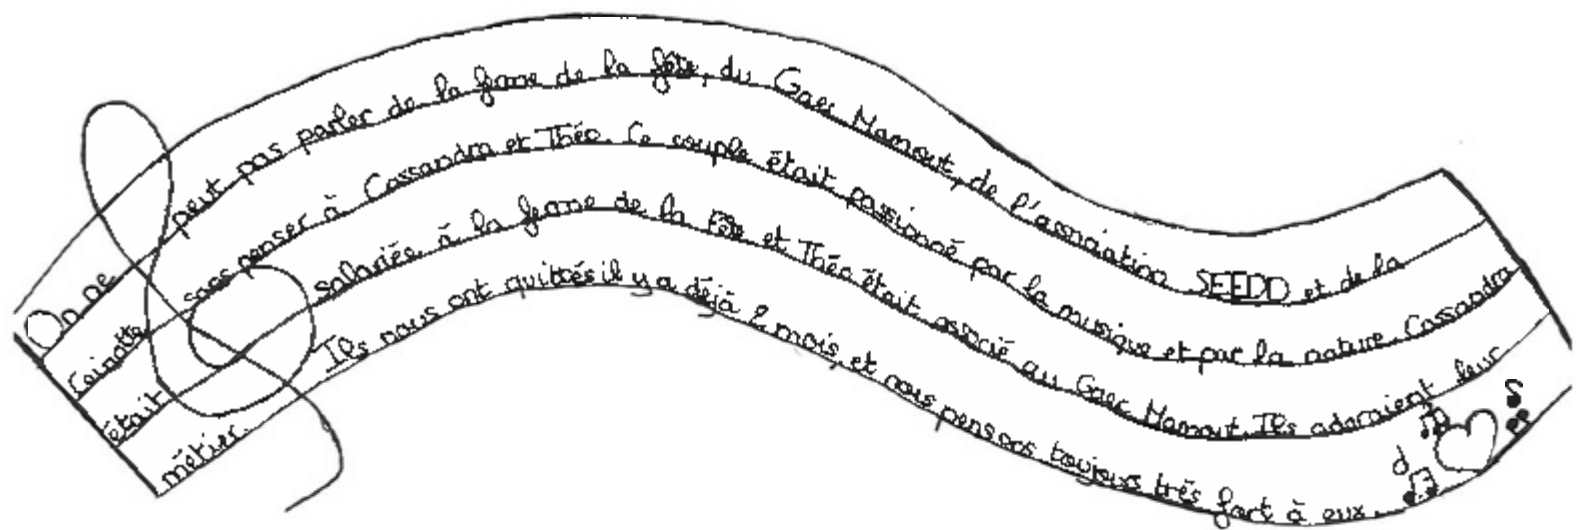 On ne peut pas parler de la ferme de la fête, du Gaec Mamout, de l'association SEEDD et de la
Coinotte sans penser à Cassandra et Théo. Ce couple était passionné par la musique et par la nature. Cassandra
était salariée à la ferme de la Fête et Théo était associé au Gaec Mamout. Ils adoraient leur
métier. Ils nous ont quittés il y a déjà 2 mois, et nous pensons toujours très fort à eux.